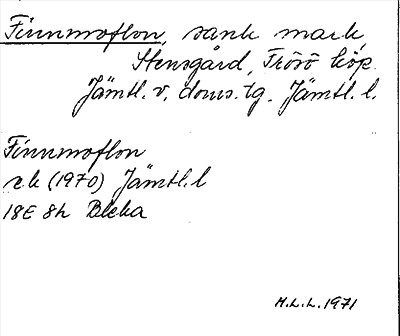 Finnmoflon, sank mark,
Stensgård, Frösö köp.
Jämtl. v. doms. tg. Jämtl. l.
Finnmoflon
r.k (1970) Jämtl. l
18E 8h Bleka
M.L.L. 1971